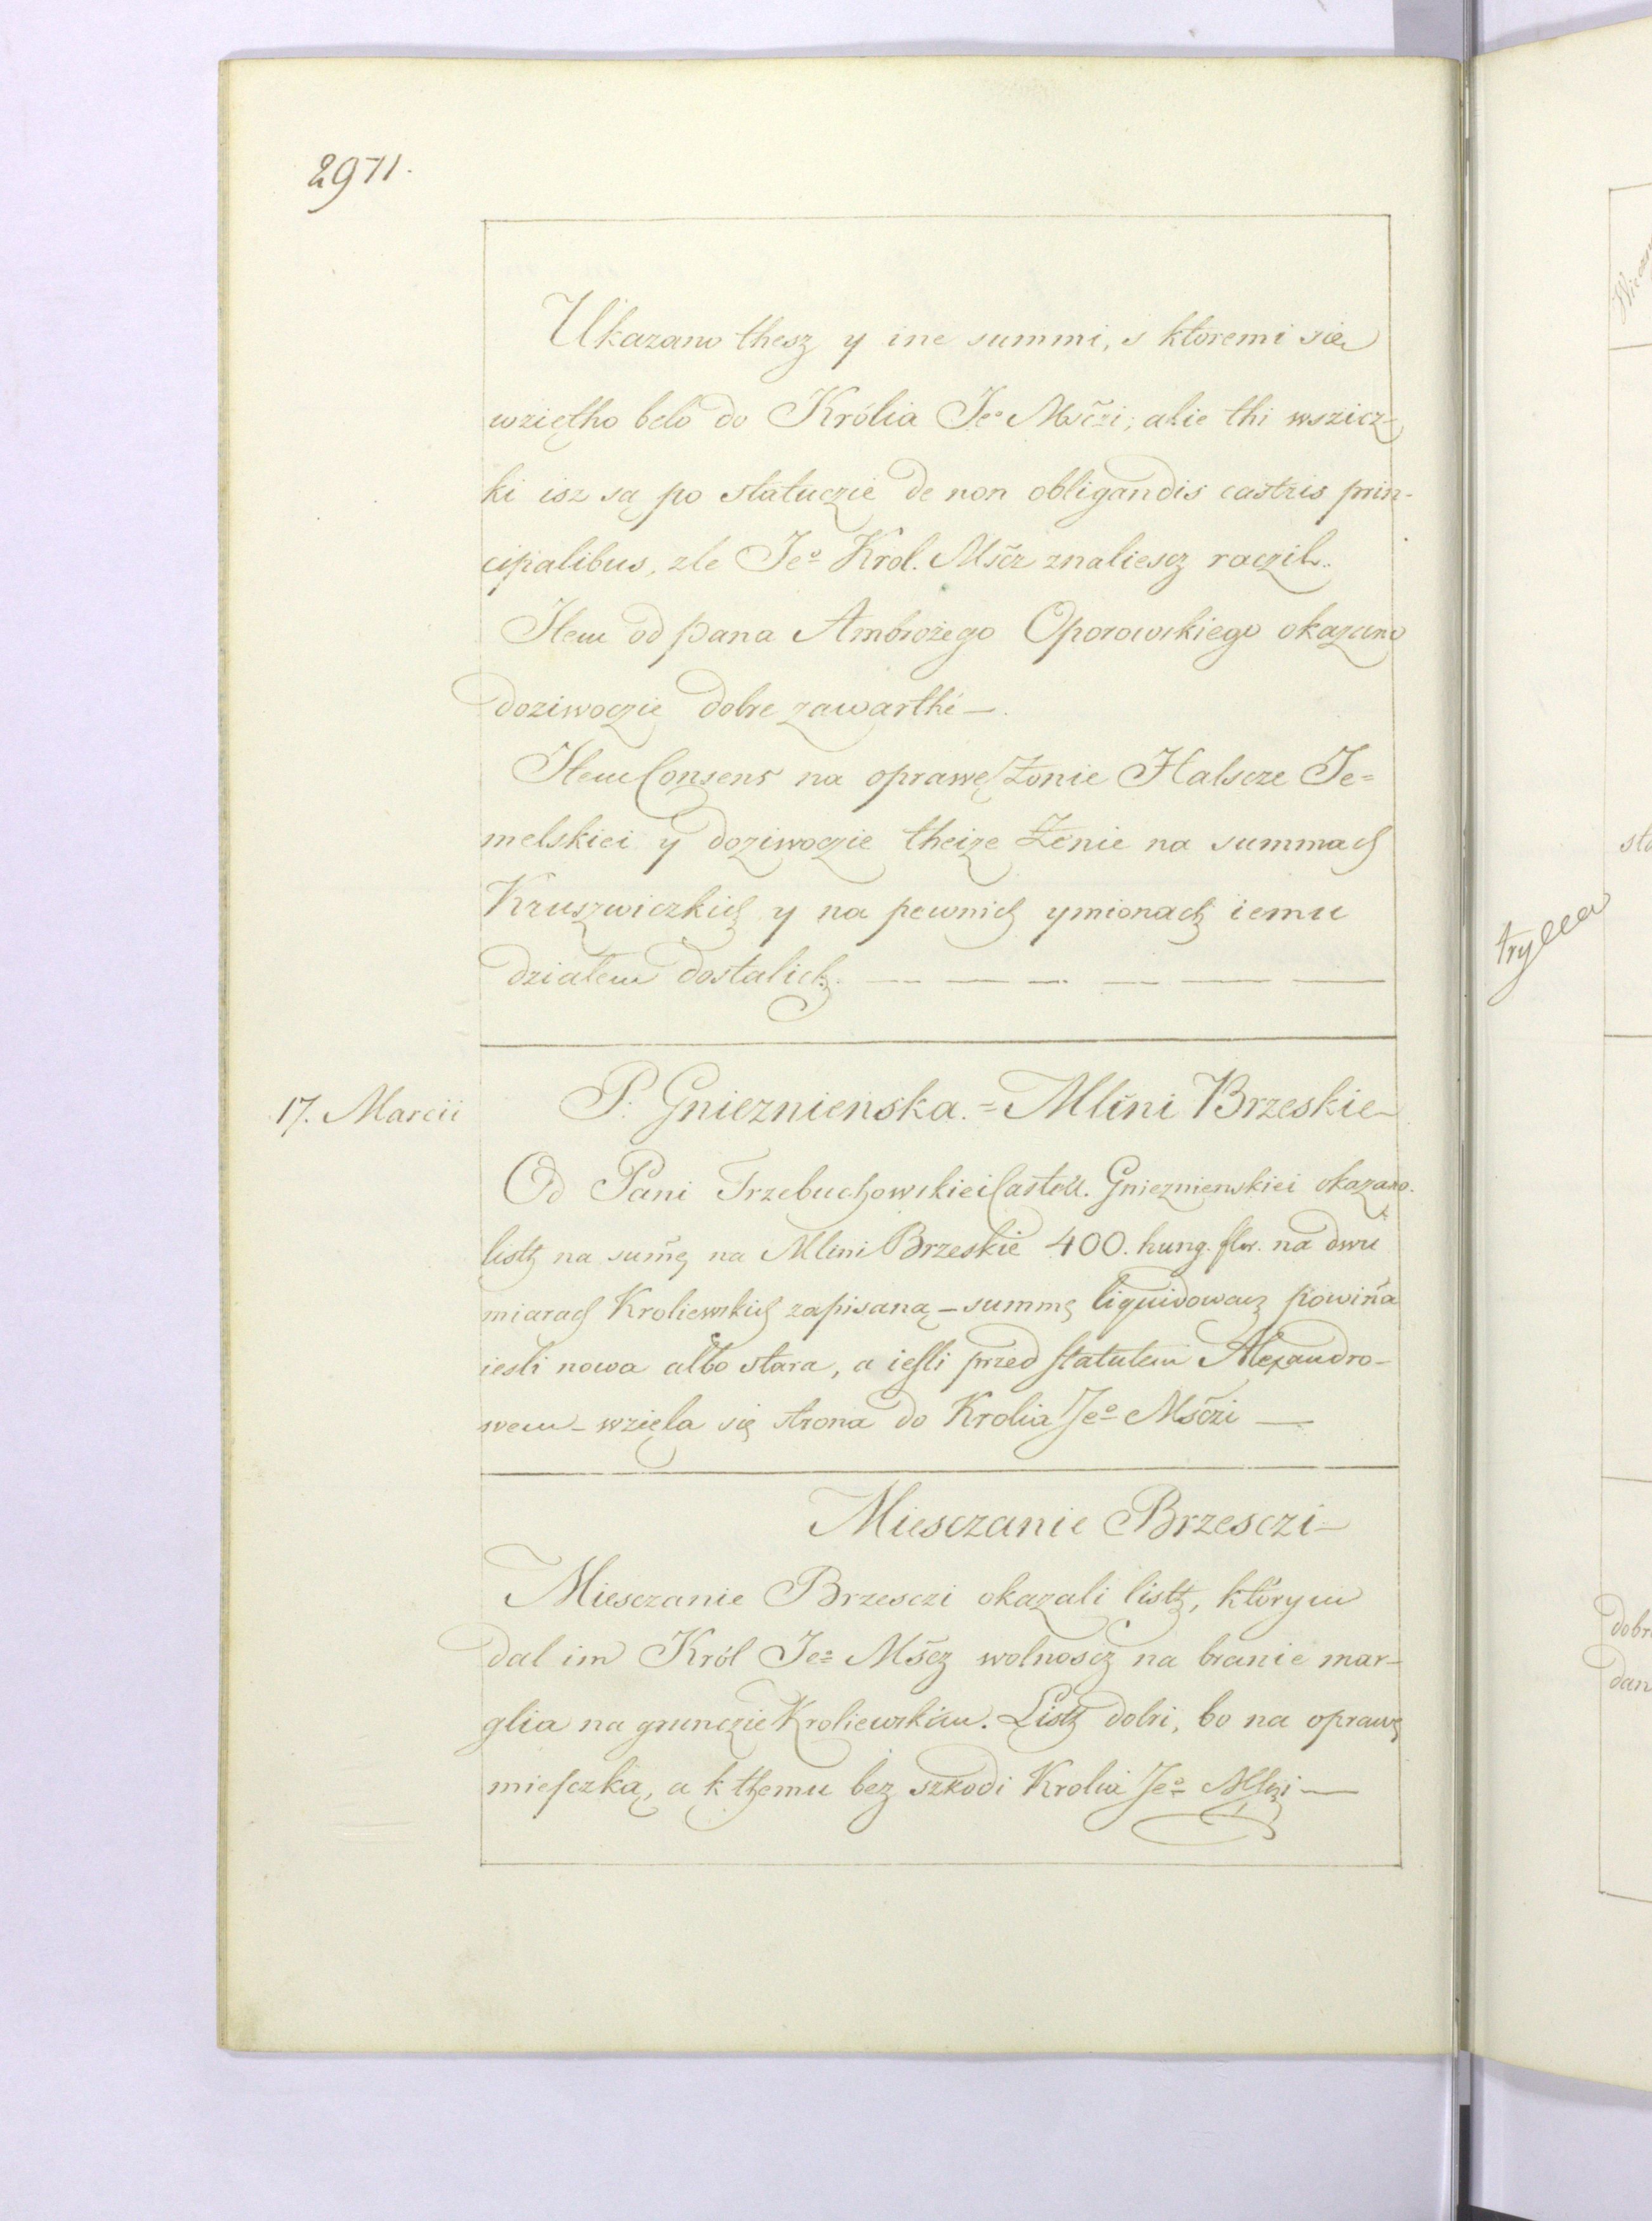 2971.
Ukazano thesz y ine summi, s ktoremi sie
wziętho belo do Królia Jeº Mśczi; alie thi wszicz-
ki isz są po statuczie de non obligandis castris prin-
cipalibus, zle Jeº Krol. Mścz znaliescz raczil.
Item od pana Ambrożego Oporowskiego okazano
doziwoczie dobre zawarthe —
Item Consens na oprawę Żonie Halscze Je=
melskiei y doziwoczie theize Żenie na summach
Kruszwiczkich y na pewnich ymionach iemu
działem dostalich. — — — — — —
17. Marcii
P. Gnieznienska. = Mlini Brzeskie
Od Pani Trzebuchowskiei Castell. Gnieznienskiei okazano.
listh na sum̃ę na Mlini Brzeskie 400. hung. flor. na dwu
miarach Kroliewskich zapisaną – summę liquidowacz powin̄a
iesli nowa albo stara, a iesli przed statutem Alexandro-
wem – wzięla się strona do Krolia Jeº Mśczi —
Miesczanie Brzesczi –
Miesczanie Brzesczi okazali listh, którym
dal im Król Jeº Mścz wolnoscz na branie mar-
glia na grunczie Kroliewskim. Listh dobri, bo na oprawę
miesczką, a k themu bez szkodi Krolia Jeº Mści —
trycea
sta
dobr
dan